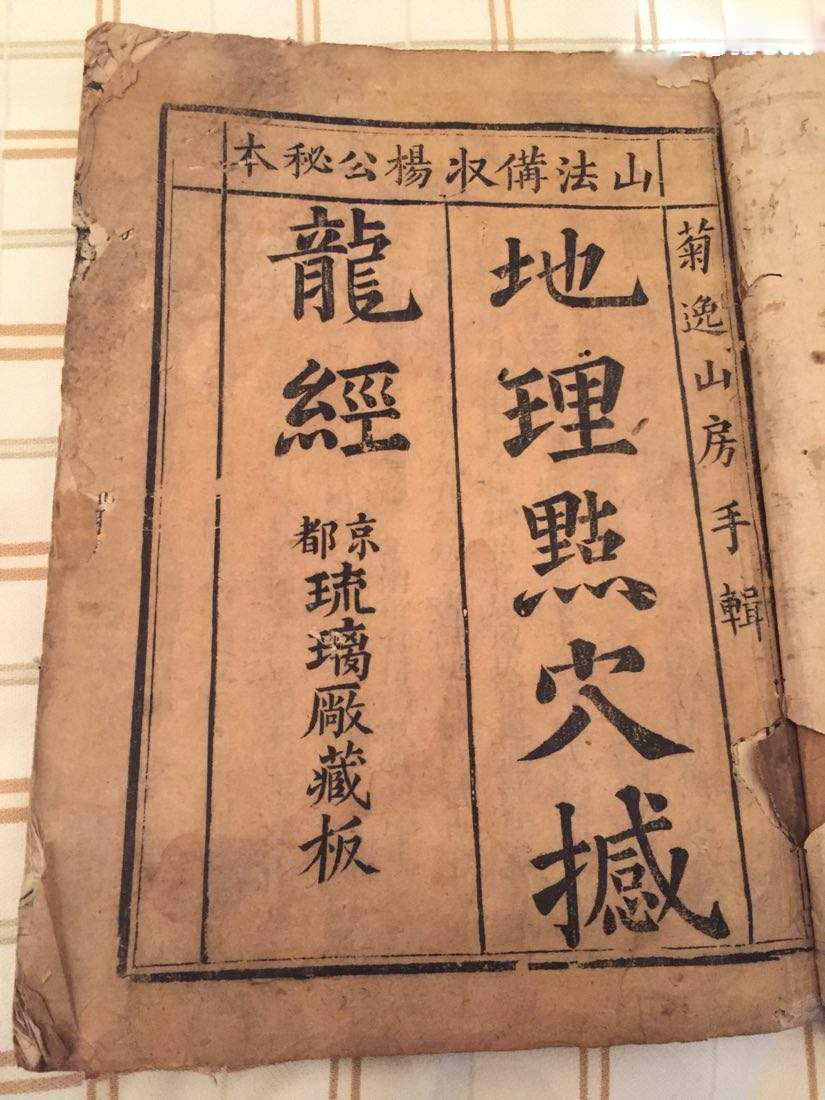 山法備収楊公秘本
菊逸山房手輯
地理點穴撼
龍經
京都
琉璃厰藏板